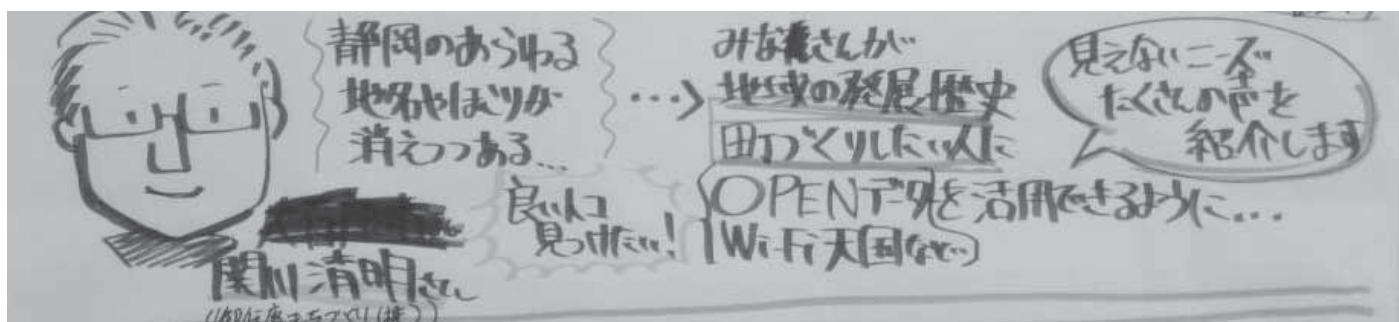 静岡のあらわる
地名やほこりが
消えつつある…
みなさんが
地域の発展歴史
町づくりしたい人に
OPENデータを活用できるように…
(Wi-Fi天国など…)
見えないニーズ
たくさんの声を
紹介します
良い人コ
見つけたい!
関川清明さん